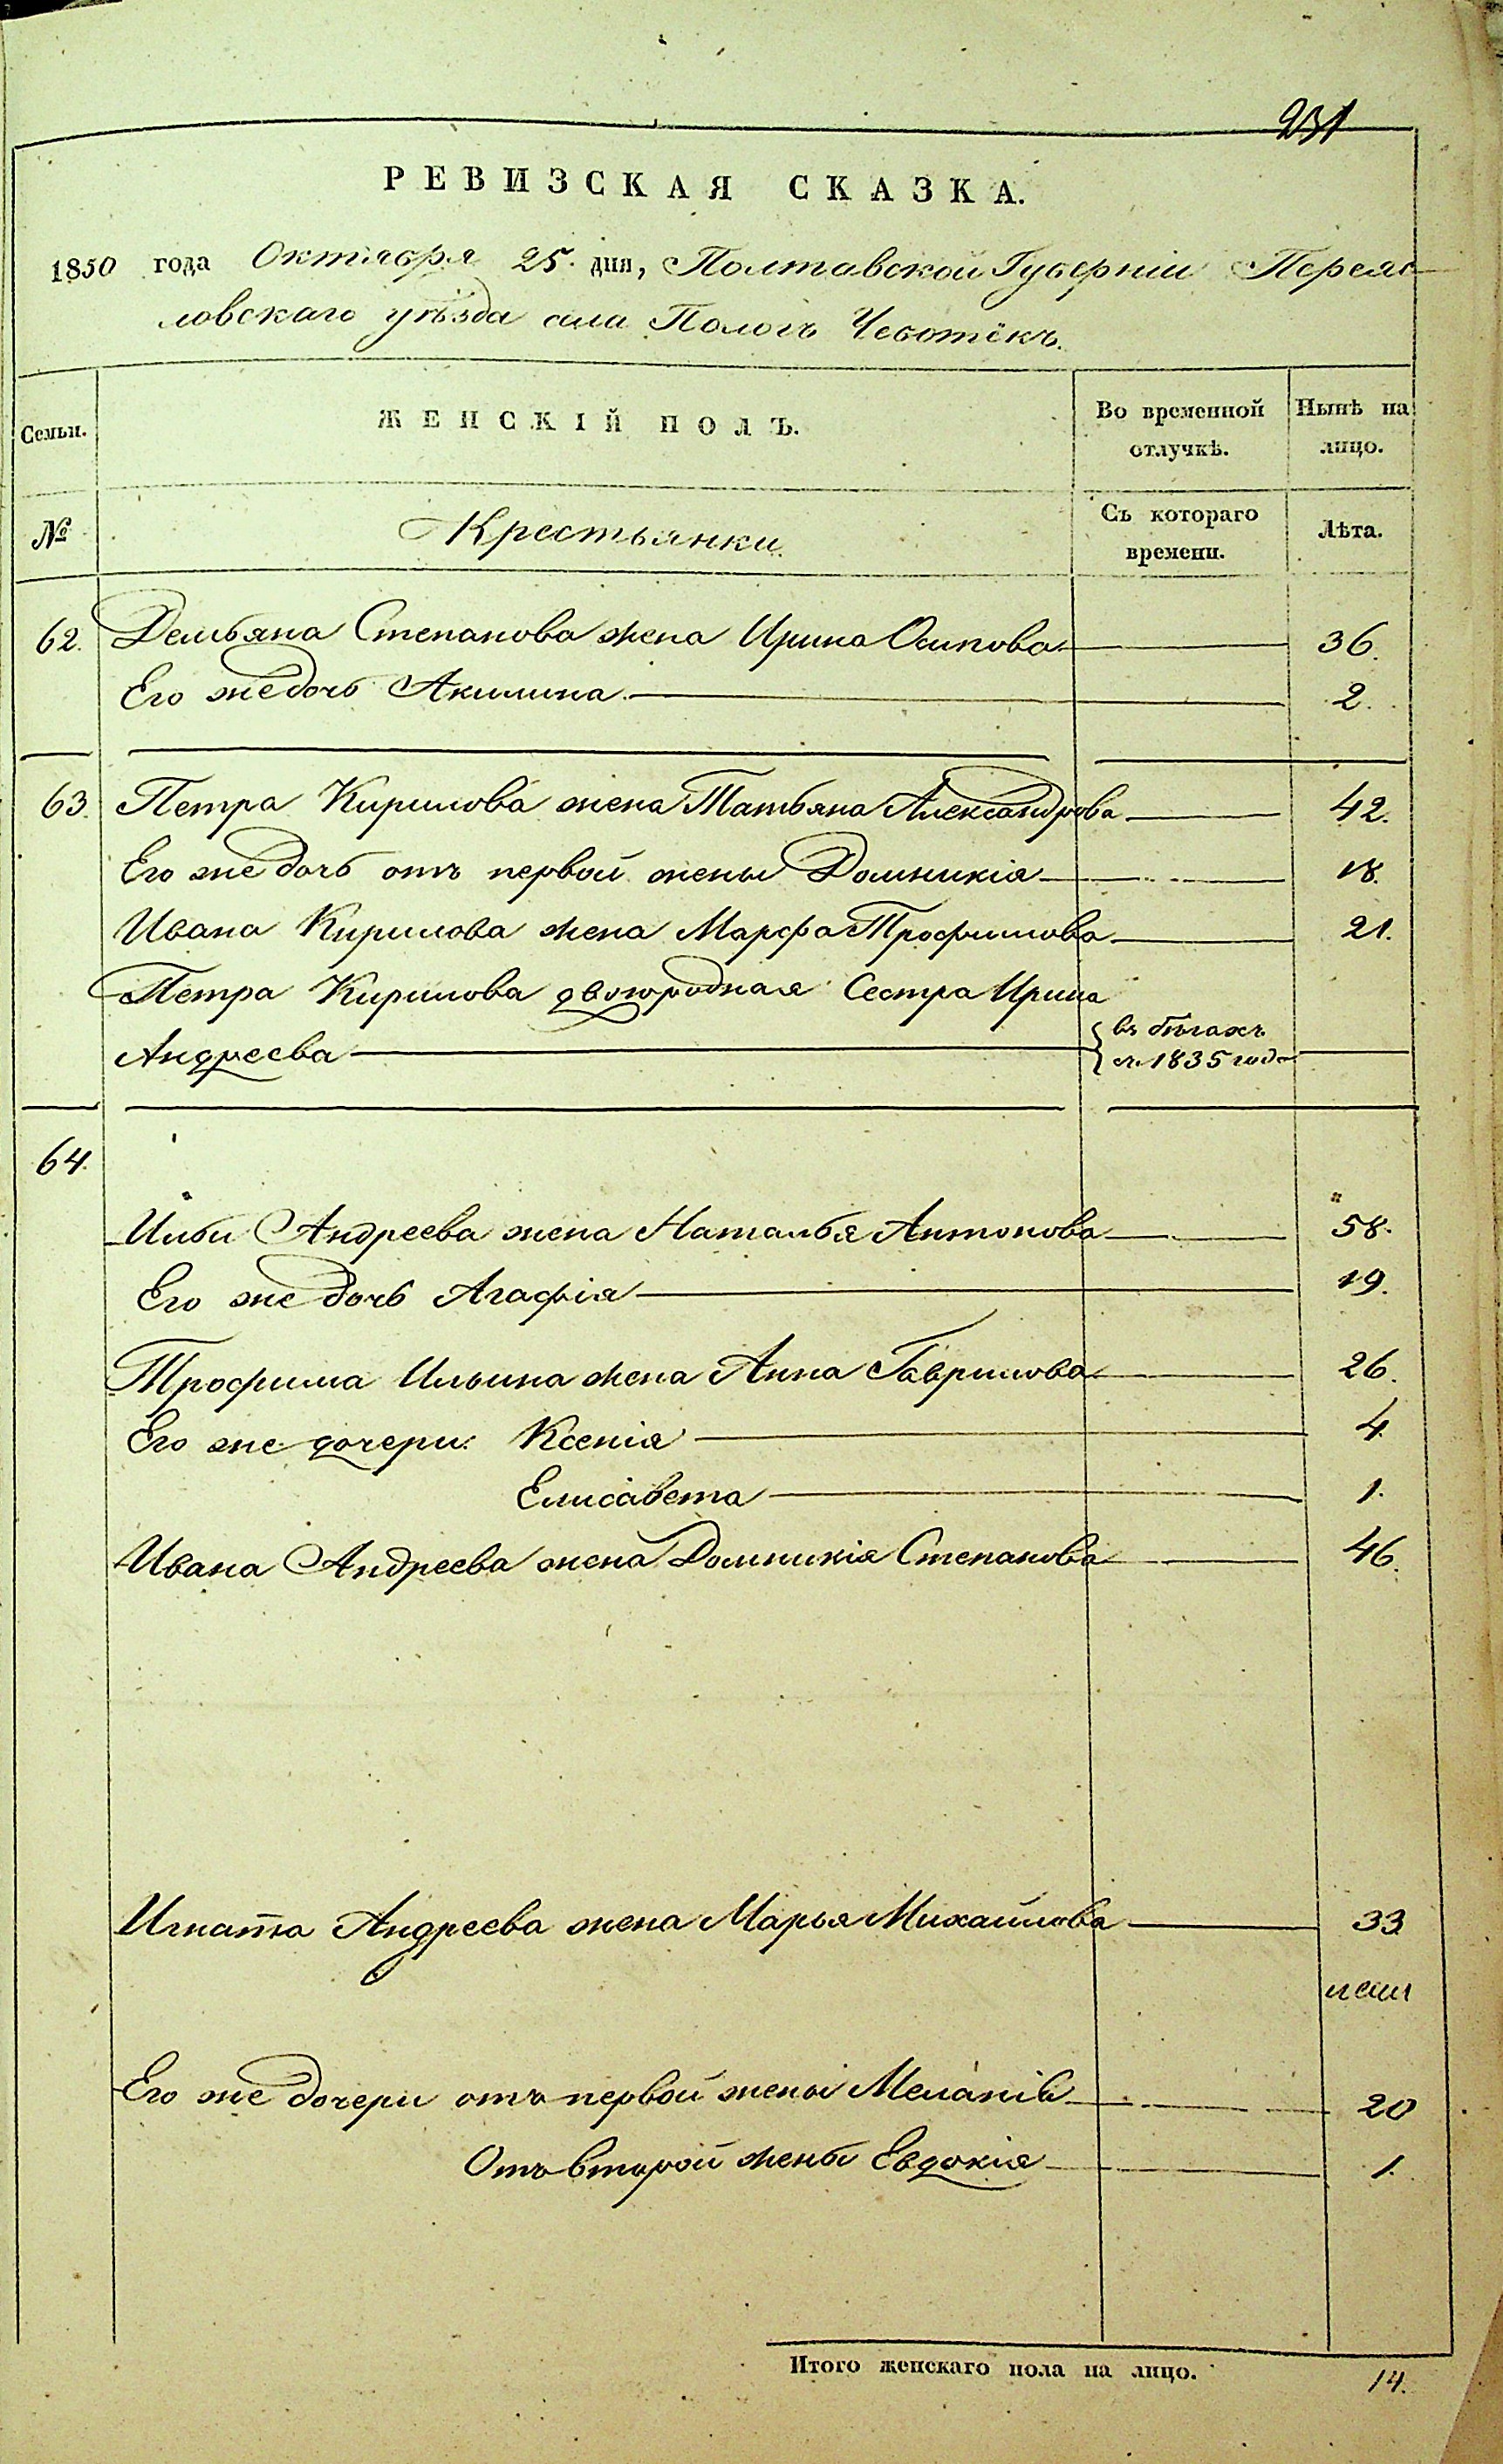 231
РЕВИЗСКАЯ СКАЗКА.
1850 года Октября 25. дня, Полтавской Губерніи Переяс-
ловскаго уѣзда села Пологъ Чеботёкъ.
Семьи. ЖЕНСКІЙ ПОЛЪ. Во временной отлучкѣ. Нынѣ на лицо.
№ Крестьянки. Съ котораго времени. Лѣта.
62. Демьяна Степанова жена Ирина Осипова 36.
Его же дочь Акилина 2.
63. Петра Кирилова жена Татьяна Александрова 42.
Его же дочь отъ первой жены Домникія 18.
Ивана Кирилова жена Марфа Трофимова 21.
Петра Кирилова двоюродная Сестра Ирина
Андреева въ бѣгахъ съ 1835 года
64.
Ильи Андреева жена Наталья Антонова 58.
Его же дочь Агафія 19.
Трофима Ильина жена Анна Гаврилова 26.
Его же дочери: Ксенія 4
Елисавета 1.
Ивана Андреева жена Домникія Степанова 46.
Игната Андреева жена Марья Михайлова 33
Его же дочери отъ первой жены Меланія 20
Отъ второй жены Евдокія 1.
Итого женскаго пола на лицо. 14.